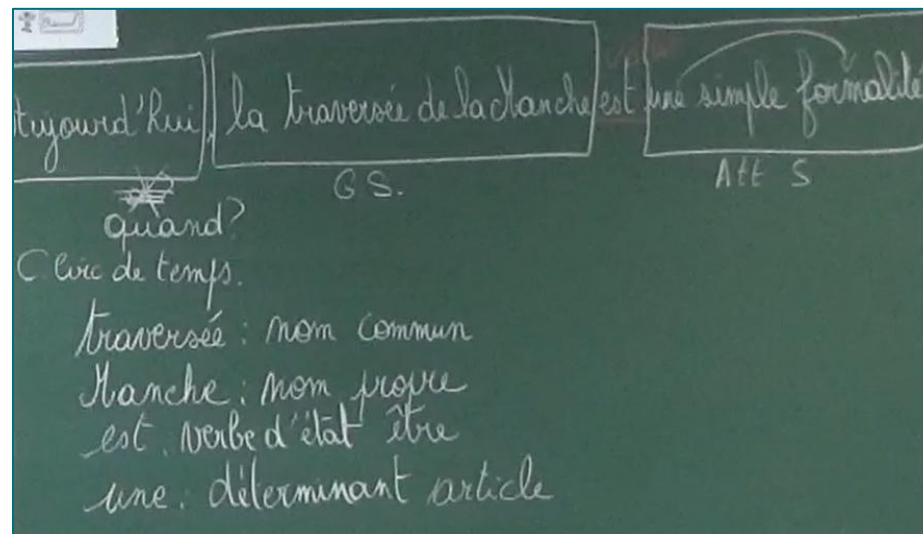 Aujourd'hui, la traversée de la Manche est une simple formalité
G S. Att S
quand?
C Circ de temps.
traversée : nom commun
Manche : nom propre
est : verbe d'état être
une : déterminant article